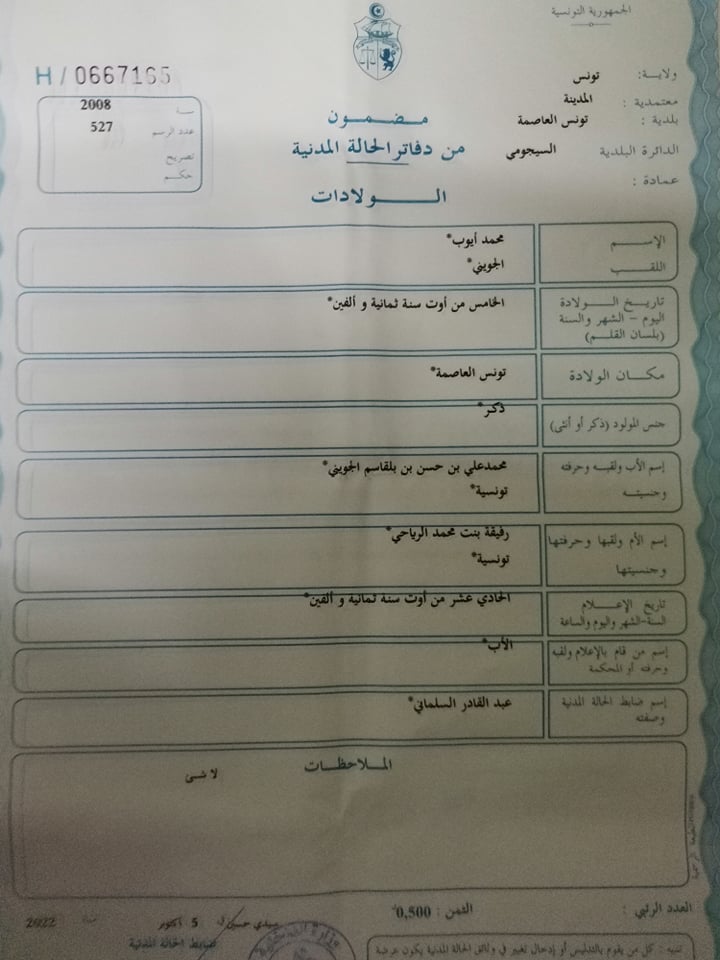 الجمهورية التونسية
H / 0667165
ولاية: تونس
معتمدية : المدينة
بلدية : تونس العاصمة
الدائرة البلدية السيجومي
عمادة :
سنة 2008
عدد الرسم 527
تصريح
حكم
مضمون
من دفاتر الحالة المدنية
الولادات
الإسم محمد أيوب*
اللقب الجويني*
تاريخ الولادة
اليوم - الشهر والسنة
(بلسان القلم)
الخامس من أوت سنة ثمانية و ألفين*
مكان الولادة تونس العاصمة*
جنس المولود (ذكر أو أنثى) ذكر*
إسم الأب ولقبه وحرفته
وجنسيته
محمدعلي بن حسن بن بلقاسم الجويني*
تونسية*
إسم الأم ولقبها وحرفتها
وجنسيتها
رفيقة بنت محمد الرباحي*
تونسية*
تاريخ الإعلام
السنة-الشهر واليوم والساعة
الحادي عشر من أوت سنة ثمانية و ألفين*
إسم من قام بالإعلام ولقبه
وحرفته أو المحكمة
الأب*
إسم ضابط الحالة المدنية
وصفته
عبد القادر السلماني*
الملاحظات
لا شئ
العدد الرتبي :
الثمن : 0,500
سيدي حسين في 5 أكتوبر 2022
ضابط الحالة المدنية
تنبيه : كل من يقوم بالتدليس أو إدخال تغيير في وثائق الحالة المدنية يكون عرضة